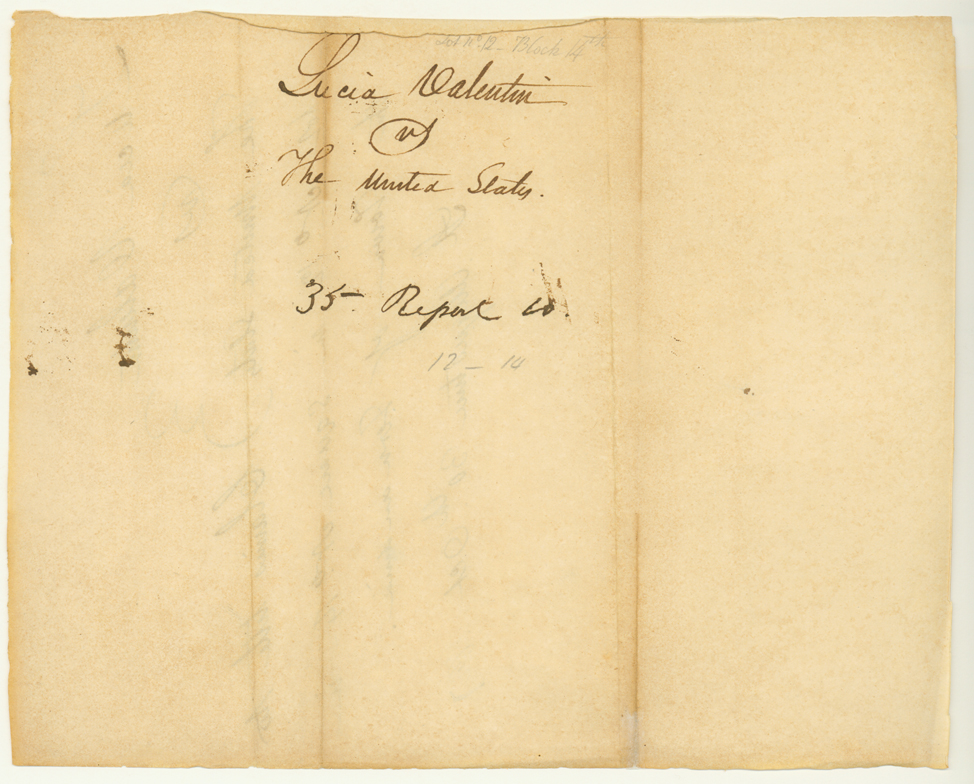 Lot No 12 - Block 14th
Lucia Valentin
vs
The United States.
35 Report 10.
12 - 14